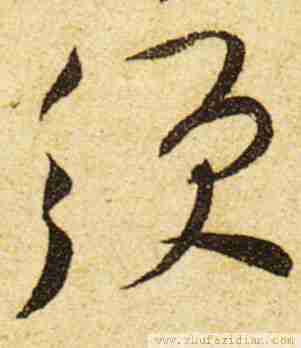 須
www.shufazidian.com